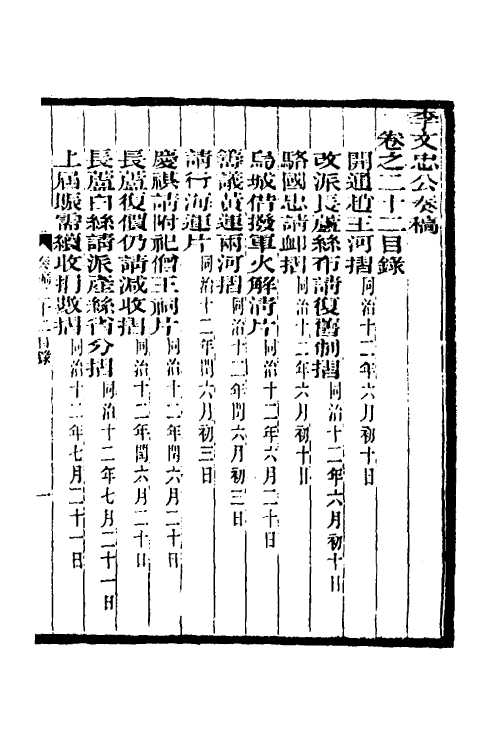 李文忠公奏稿
卷之二十二目錄
開通趙王河摺同治十二年六月初十日
改派長蘆絲布請復舊制摺同治十二年六月初十日
駱國忠請卹摺同治十二年六月初十日
烏城借撥軍火解清片同治十二年六月二十日
籌議黃運兩河摺同治十二年閏六月初三日
請行海運片同治十二年閏六月初三日
慶祺請附祀僧王祠片同治十二年閏六月二十日
長蘆復價仍請減收摺同治十二年閏六月二十日
長蘆白絲請派產絲省分摺同治十二年七月二十一日
上屆賑需續收捐數摺同治十二年七月二十一日
奏稿二十二目錄
一